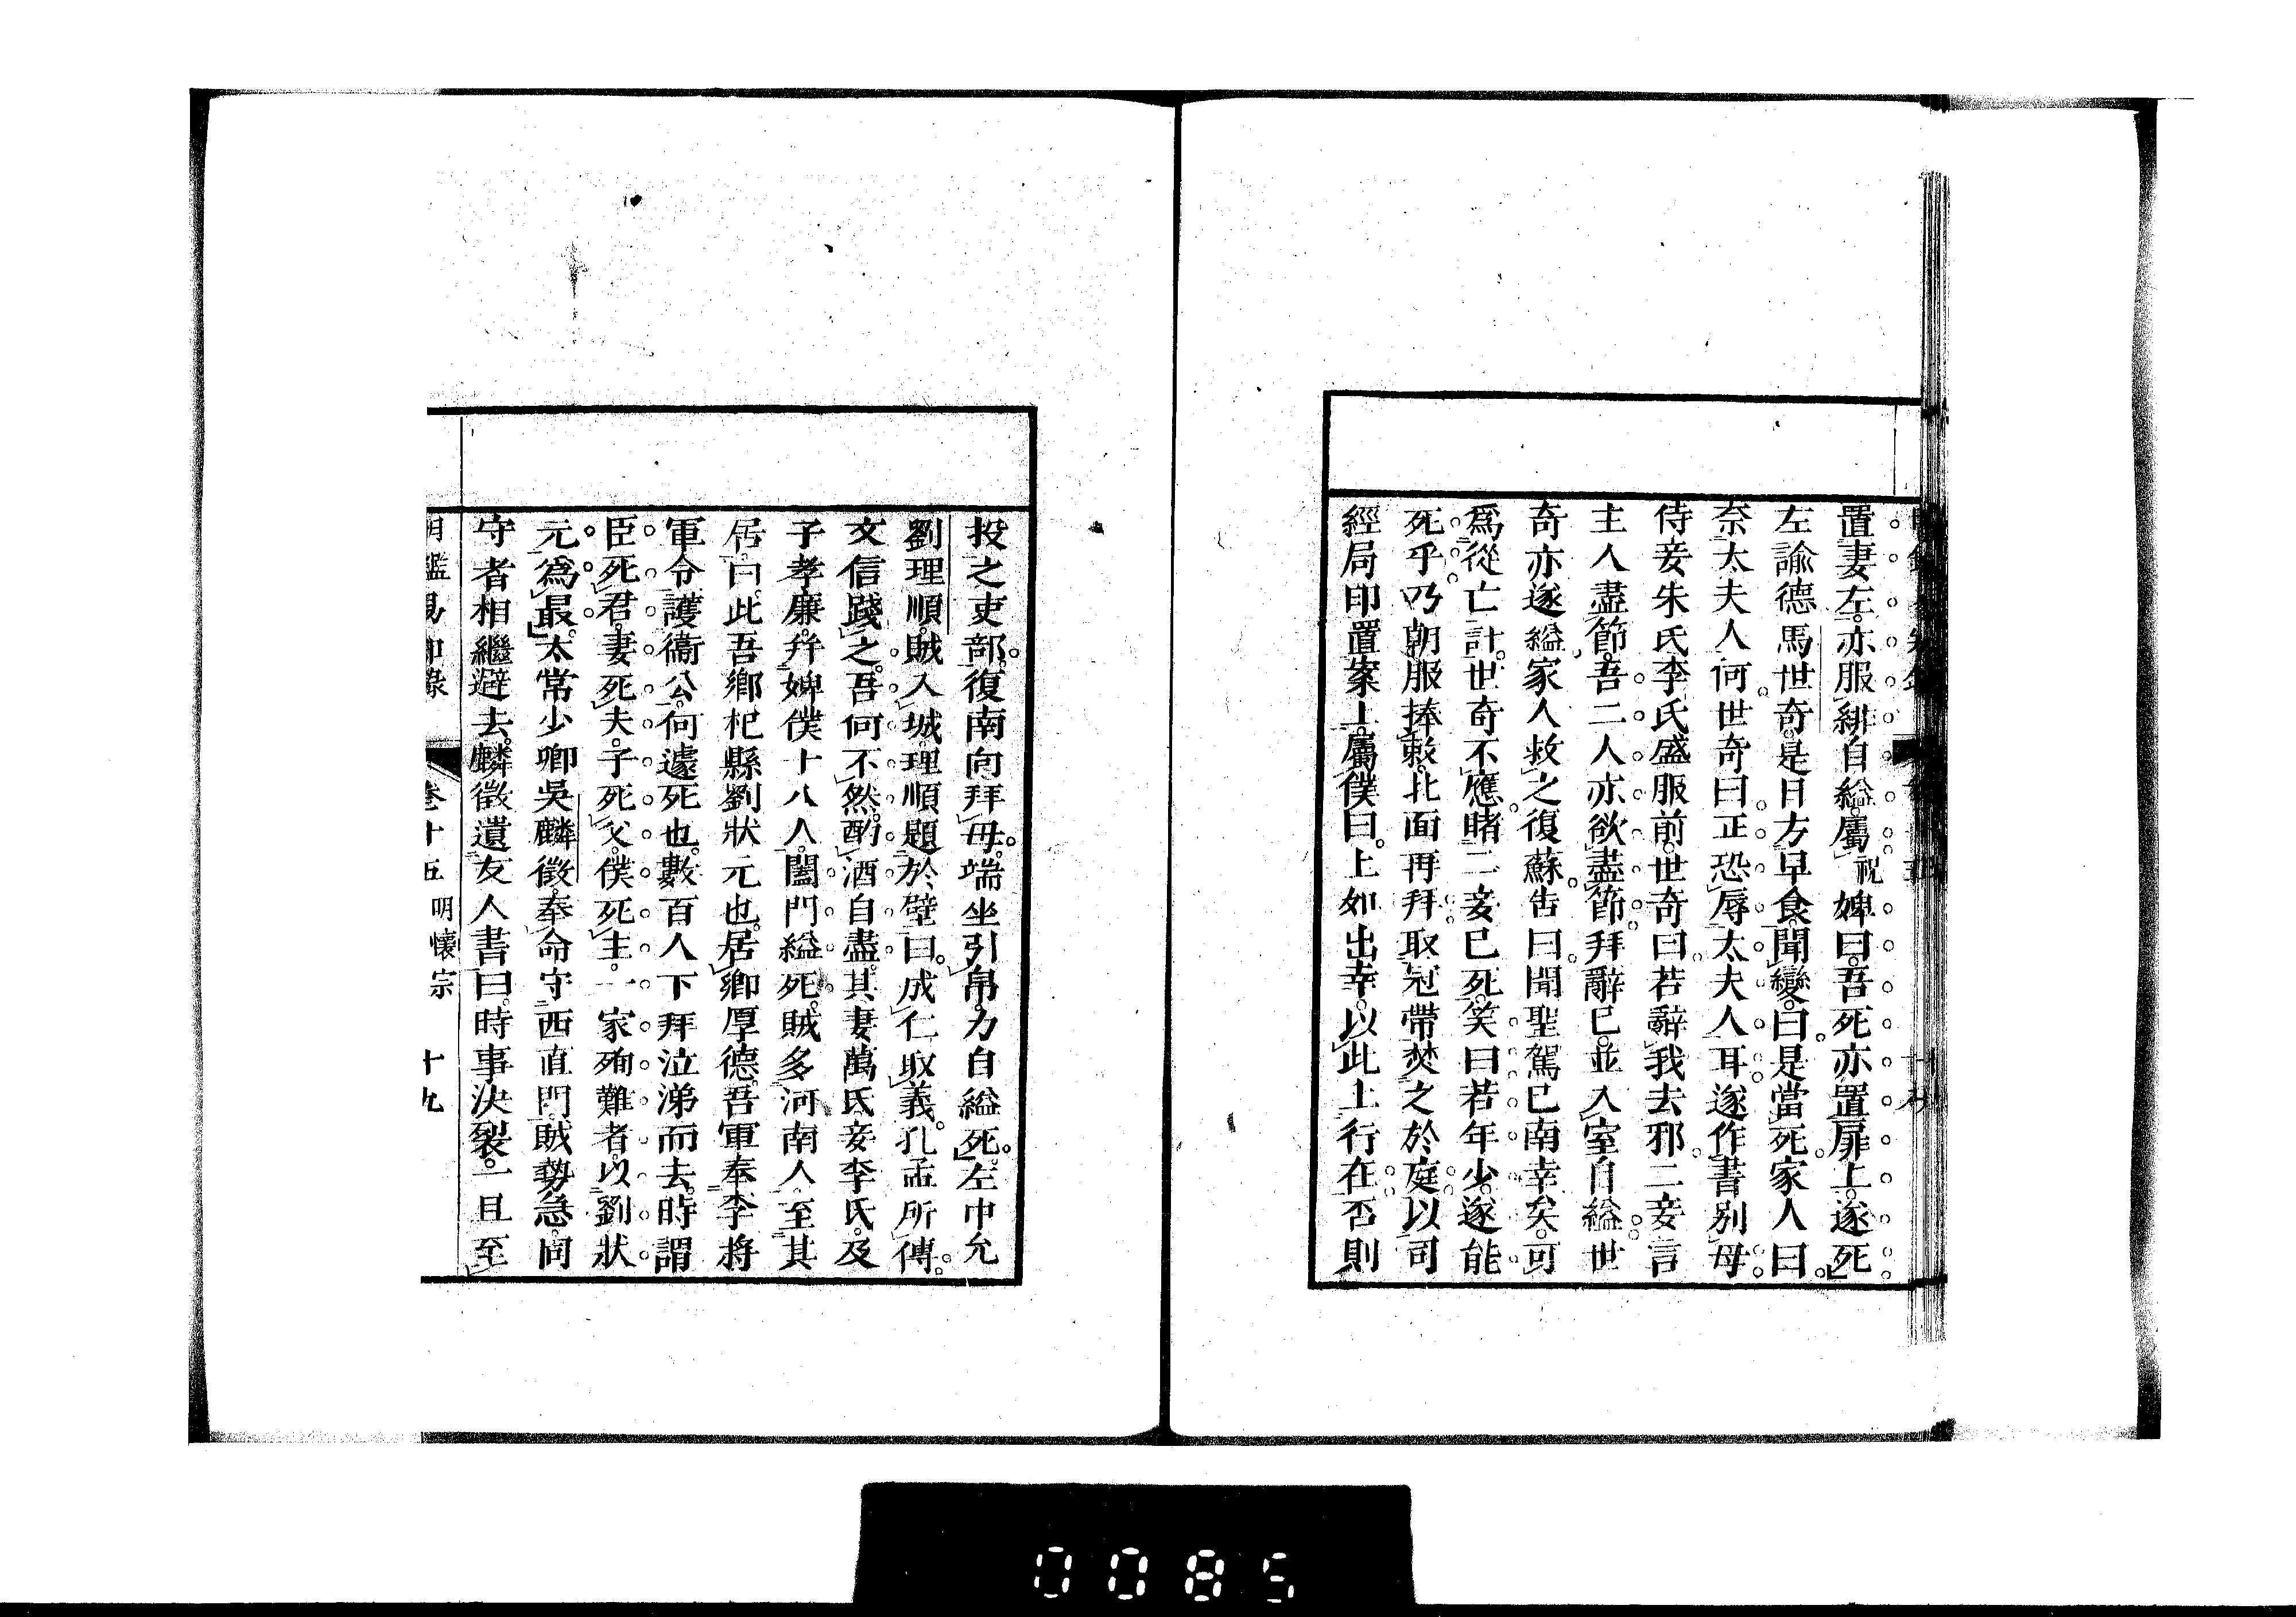 置妻左。亦服緋自縊。屬祝婢曰。吾死亦置扉上。遂死
左諭德馬世奇。是日方早食。聞變。曰。是當死。家人曰。
奈太夫人何。世奇曰。正恐辱太夫人耳。遂作書別母。
侍妾朱氏李氏盛服前。世奇曰。若辭我去邪。二妾言
主人盡節。吾二人亦欲盡節。拜辭已。並入室自縊。世
奇亦遂縊。家人救之復蘇。告曰。聞聖駕已南幸矣。可
爲從亡計。世奇不應。睹二妾已死。笑曰。若年少。遂能
死乎。乃朝服捧敕。北面再拜。取冠帶焚之於庭。以司
經局印置案上。屬僕曰。上如出幸。以此上行在。否則
投之吏部。復南向拜母。端坐引帛。力自縊死。左中允
劉理順。賊入城。理順題於壁曰。成仁取義。孔孟所傳。
文信踐之。吾何不然。酌酒自盡。其妻萬氏。妾李氏。及
子孝廉。幷婢僕十八人。闔門縊死。賊多河南人。至其
居。曰。此吾鄉杞縣劉狀元也。居鄉厚德。吾軍奉李將
軍令。護衞公。何遽死也。數百人下拜泣涕而去。時謂
臣死君。妻死夫。子死父。僕死主。一家殉難者。以劉狀
元爲最。太常少卿吳麟徵。奉命守西直門。賊勢急。同
守者相繼避去。麟徵遺友人書曰。時事決裂。一旦至
明鑑易知錄 卷十五 明懷宗 十九